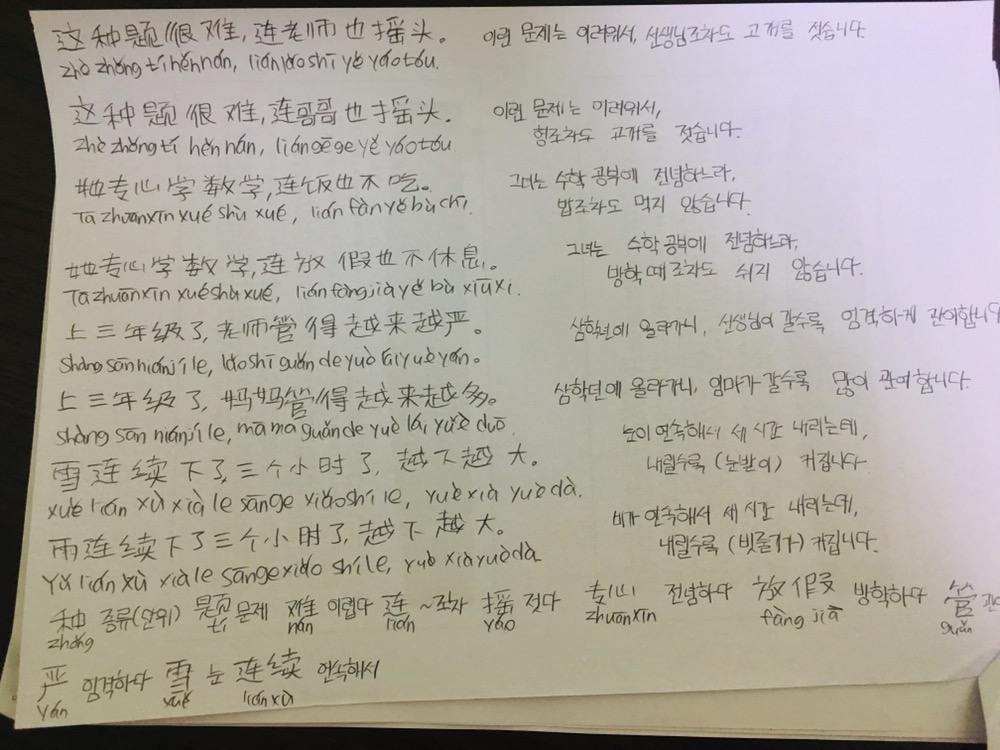 这种题很难，连老师也摇头。 이런 문제는 어려워서, 선생님조차도 고개를 젓습니다.
zhè zhǒng tí hěn nán, lián lǎo shī yě yáo tóu.
这种题很难，连哥哥也摇头。 이런 문제는 어려워서,
형조차도 고개를 젓습니다.
zhè zhǒng tí hěn nán, lián gē ge yě yáo tóu
她专心学数学，连饭也不吃。 그녀는 수학 공부에 전념하느라,
밥조차도 먹지 않습니다.
Tā zhuān xīn xué shù xué, lián fàn yě bù chī.
她专心学数学，连放假也不休息。 그녀는 수학 공부에 전념하느라,
방학때조차도 쉬지 않습니다.
Tā zhuān xīn xué shù xué, lián fàng jià yě bù xiū xi.
上三年级了，老师管得越来越严。 삼학년에 올라가니, 선생님이 갈수록 엄격하게 관여합니다
shàng sān nián jí le, lǎo shī guǎn de yuè lái yuè yán.
上三年级了，妈妈管得越来越多。 삼학년에 올라가니, 엄마가 갈수록 많이 관여합니다.
shàng sān nián jí le, mā ma guǎn de yuè lái yuè duō
雪连续下了三个小时了，越下越大。 눈이 연속해서 세 시간 내리는데,
내릴수록 (눈발이) 커집니다
xuě lián xù xià le sān ge xiǎo shí le, yuè xià yuè dà.
雨连续下了三个小时了，越下越大。 비가 연속해서 세 시간 내리는데,
내릴수록 (빗줄기가) 커집니다.
yǔ lián xù xià le sān ge xiǎo shí le, yuè xià yuè dà
种 종류(단위) 题 문제 难 어렵다 连 ~조차 摇 젓다 专心 전념하다 放假 방학하다 管
zhǒng tí nán lián yáo zhuān xīn fàng jià guǎn
严 엄격하다 雪 눈 连续 연속해서
yán xuě lián xù